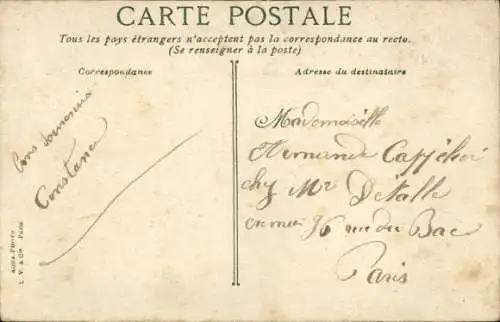 CARTE POSTALE
Tous les pays étrangers n'acceptent pas la correspondance au recto.
(Se renseigner à la poste)
Correspondance
Adresse du destinataire
Bons souvenirs
Constance
Mademoiselle
Fernande
chez Mr Detalle
96 rue du Bac
Paris
AQUA-PHOTO
L. V. & Cie Paris